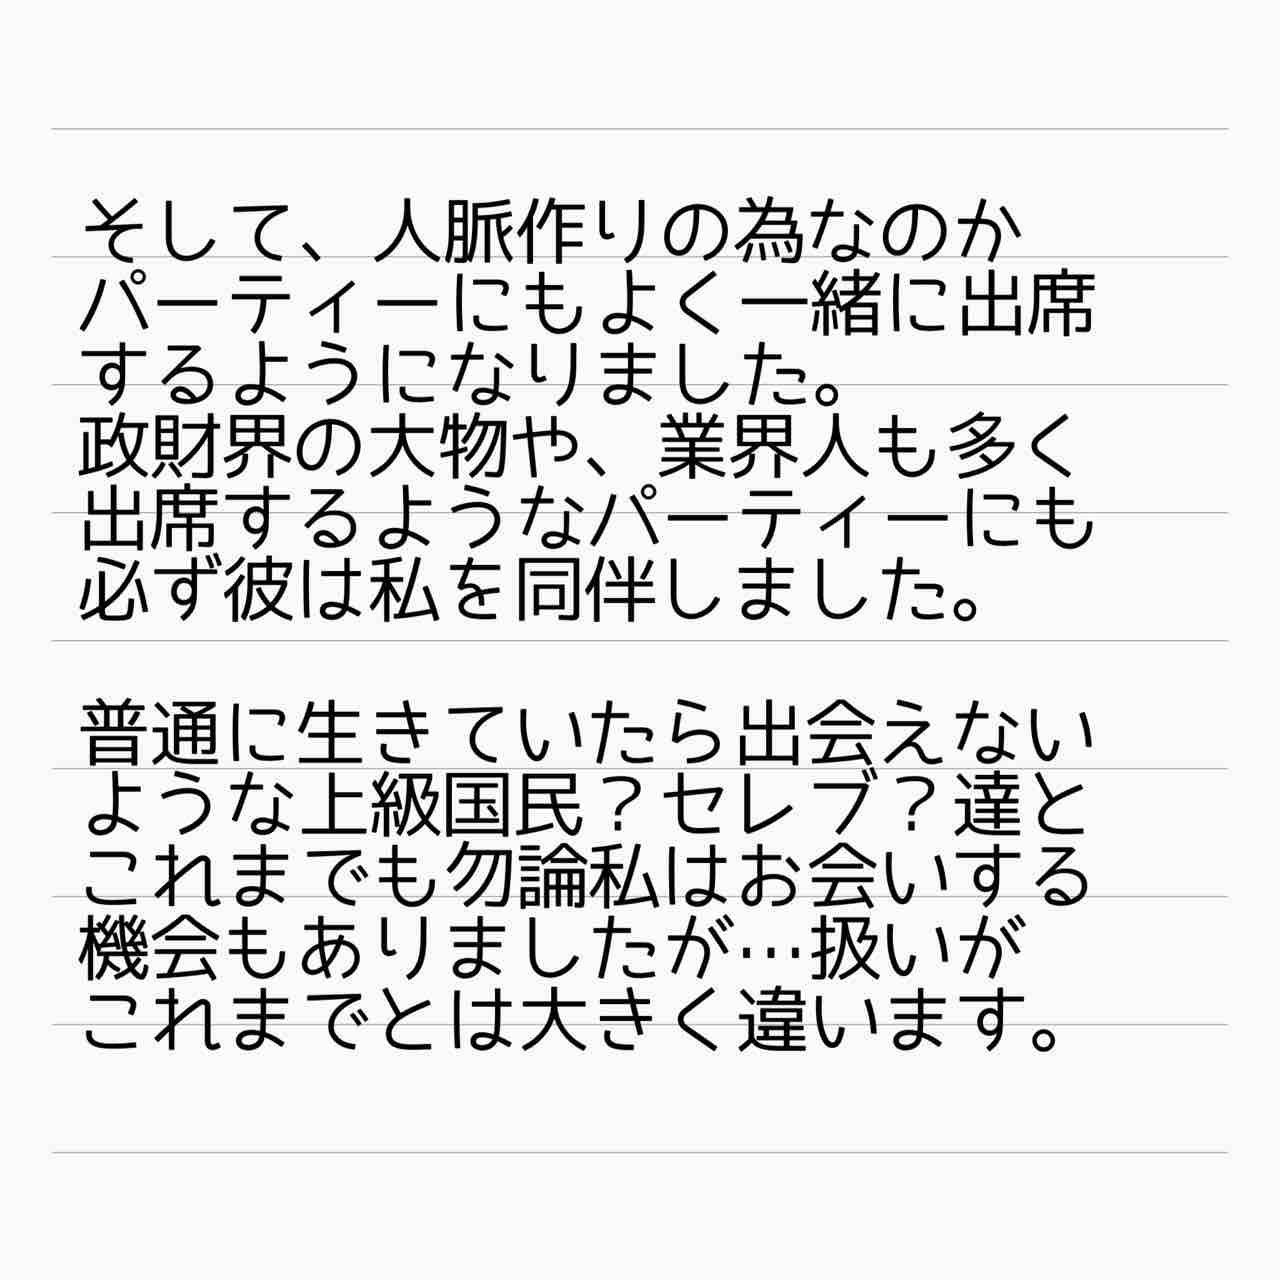 そして、人脈作りの為なのか
パーティーにもよく一緒に出席
するようになりました。
政財界の大物や、業界人も多く
出席するようなパーティーにも
必ず彼は私を同伴しました。
普通に生きていたら出会えない
ような上級国民？セレブ？達と
これまでも勿論私はお会いする
機会もありましたが…扱いが
これまでとは大きく違います。